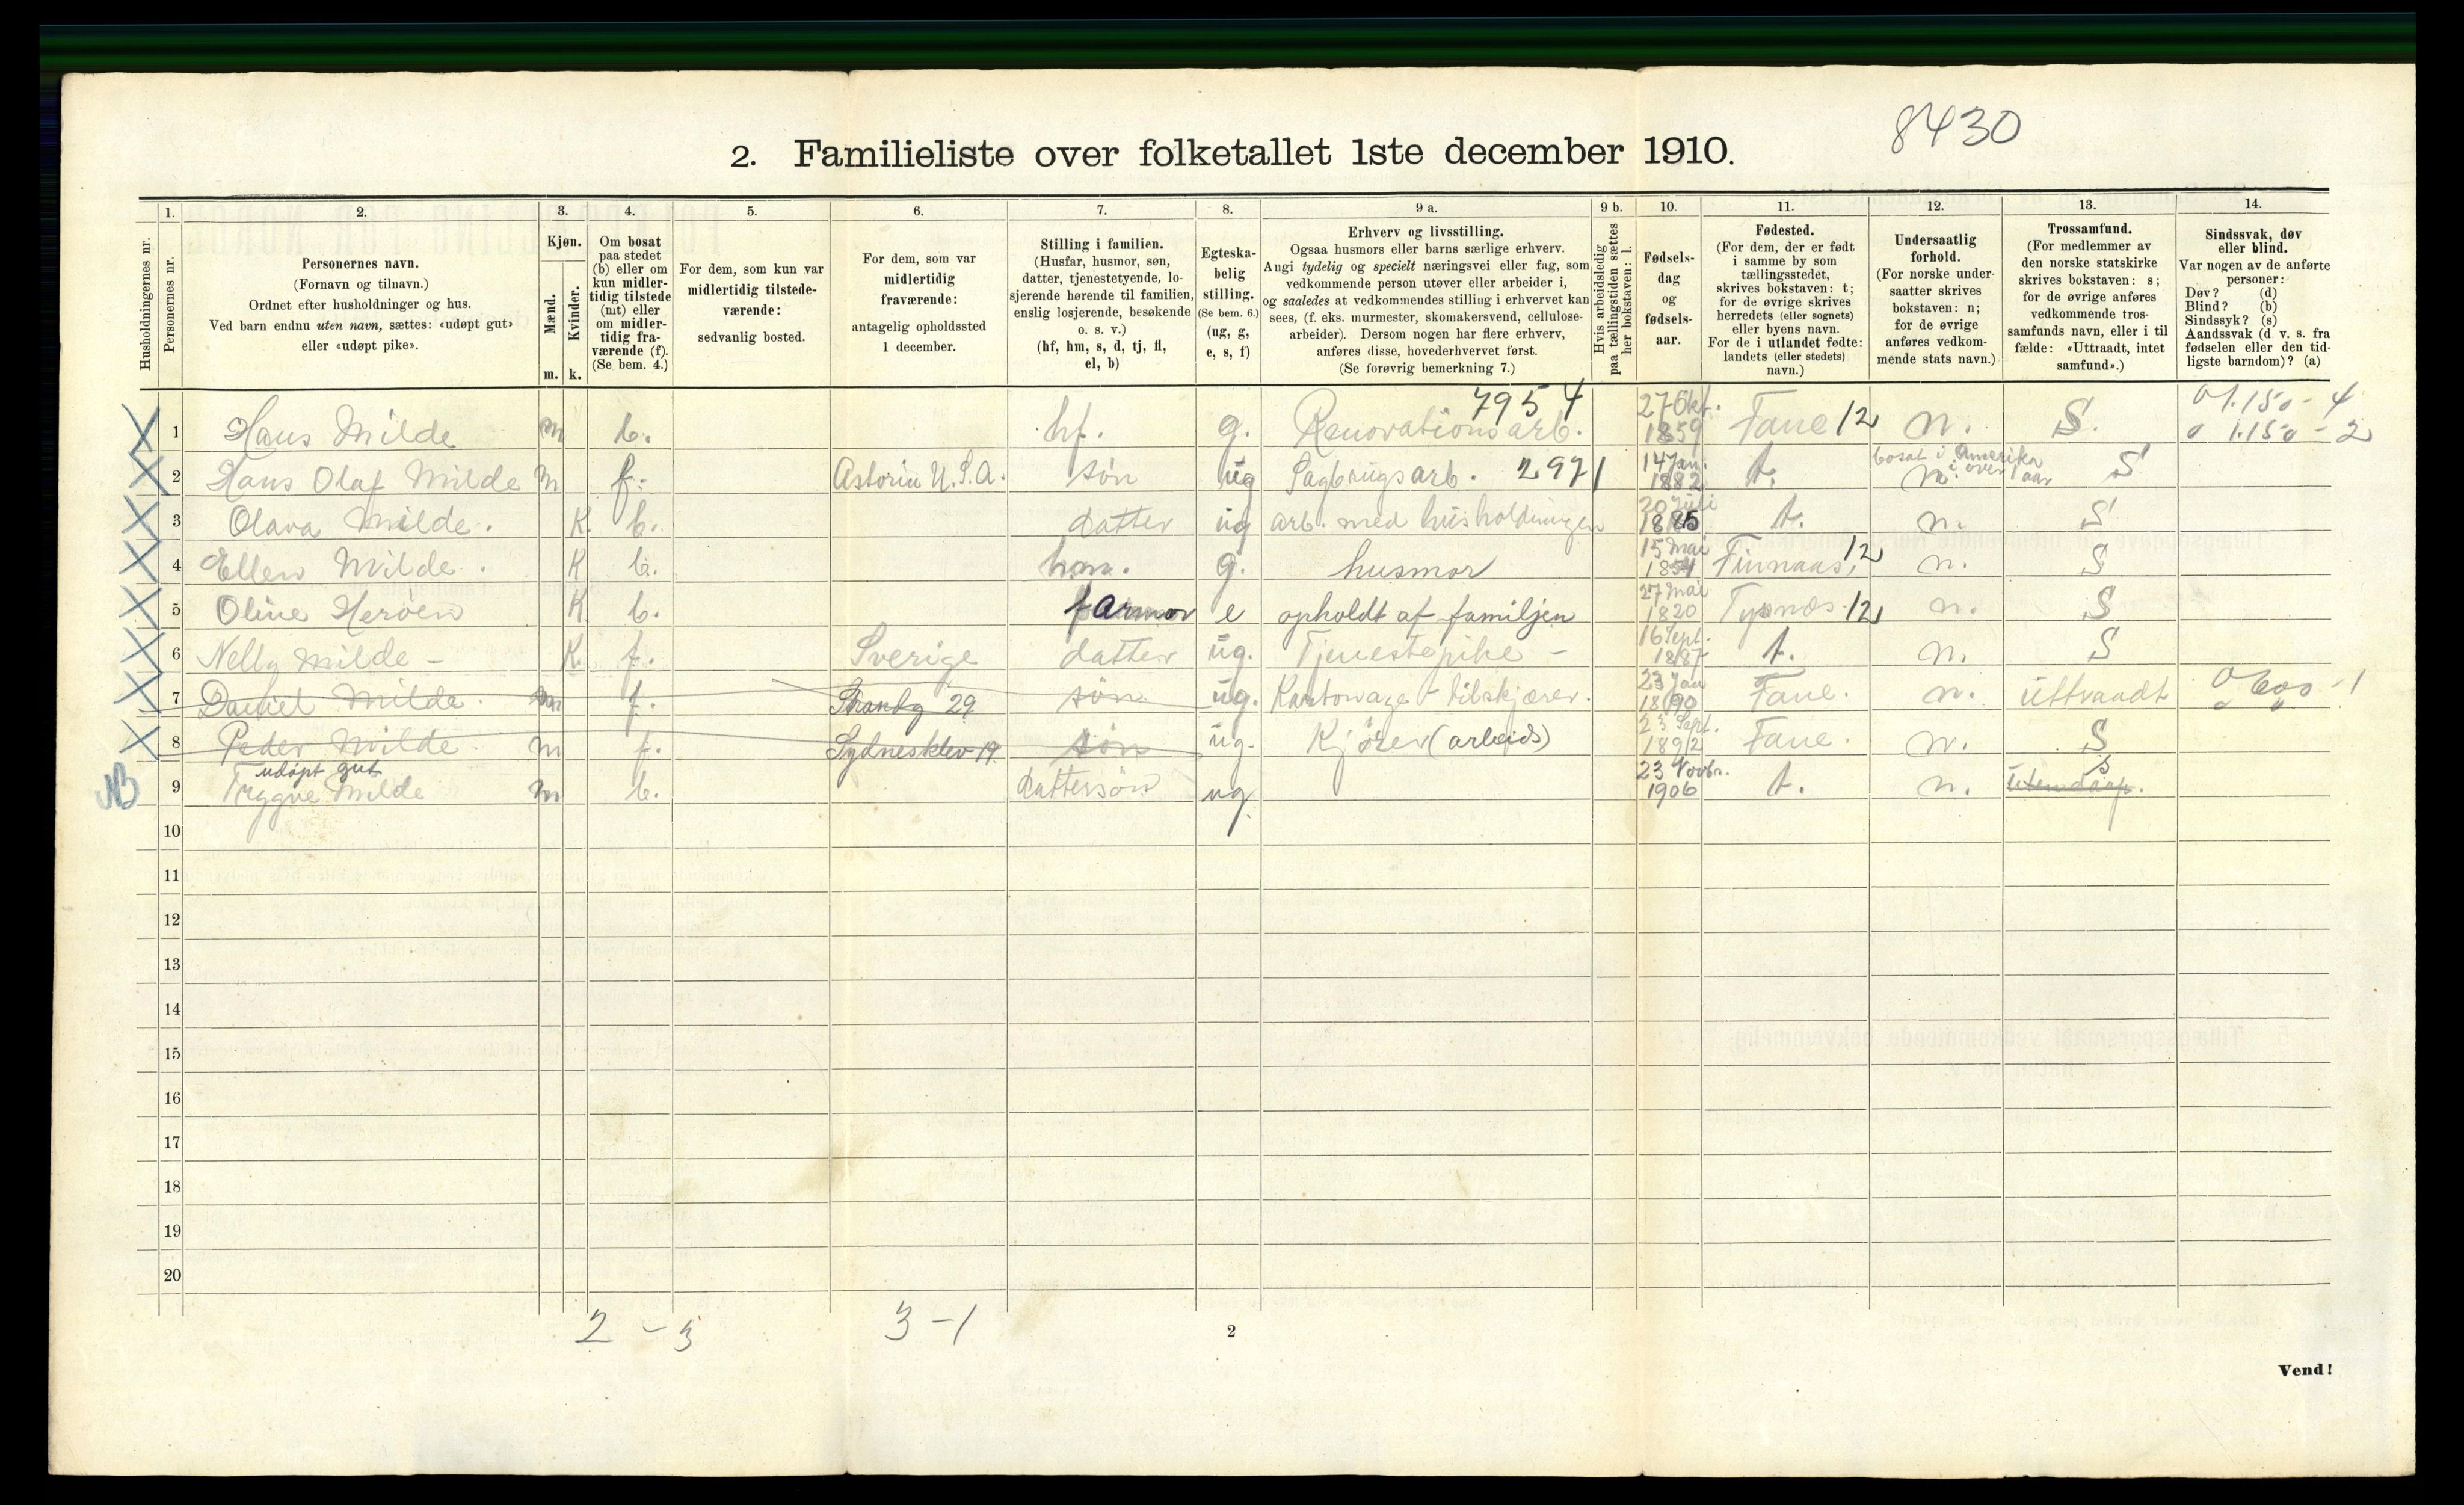 8430
2. Familieliste over folketallet 1ste december 1910.
Husholdningernes nr.
1.
Personernes nr.
2.
Personernes navn.
(Fornavn og tilnavn.)
Ordnet efter husholdninger og hus.
Ved barn endnu uten navn, sættes: «udøpt gut»
eller «udøpt pike».
3.
Kjøn.
Mænd.
Kvinder.
m. k.
4.
Om bosat
paa stedet
(b) eller om
kun midler-
tidig tilstede
(mt) eller
om midler-
tidig fra-
værende (f).
(Se bem. 4.)
5.
For dem, som kun var
midlertidig tilstede-
værende:
sedvanlig bosted.
6.
For dem, som var
midlertidig
fraværende:
antagelig opholdssted
1 december.
7.
Stilling i familien.
(Husfar, husmor, søn,
datter, tjenestetyende, lo-
sjerende hørende til familien,
enslig losjerende, besøkende
o. s. v.)
(hf, hm, s, d, tj, fl,
el, b)
8.
Egteska-
belig
stilling.
(Se bem. 6.)
(ug, g,
e, s, f)
9 a.
Erhverv og livsstilling.
Ogsaa husmors eller barns særlige erhverv.
Angi tydelig og specielt næringsvei eller fag, som
vedkommende person utøver eller arbeider i,
og saaledes at vedkommendes stilling i erhvervet kan
sees, (f. eks. murmester, skomakersvend, cellulose-
arbeider). Dersom nogen har flere erhverv,
anføres disse, hovederhvervet først.
(Se forøvrig bemerkning 7.)
9 b.
Hvis arbeidsledig
paa tællingstiden sættes
her bokstaven: l.
10.
Fødsels-
dag
og
fødsels-
aar.
11.
Fødested.
(For dem, der er født
i samme by som
tællingsstedet,
skrives bokstaven: t;
for de øvrige skrives
herredets (eller sognets)
eller byens navn.
For de i utlandet fødte:
landets (eller stedets)
navn.)
12.
Undersaatlig
forhold.
(For norske under-
saatter skrives
bokstaven: n;
for de øvrige
anføres vedkom-
mende stats navn.)
13.
Trossamfund.
(For medlemmer av
den norske statskirke
skrives bokstaven: s;
for de øvrige anføres
vedkommende tros-
samfunds navn, eller i til
fælde: «Uttraadt, intet
samfund».)
14.
Sindssvak, døv
eller blind.
Var nogen av de anførte
personer:
Døv? (d)
Blind? (b)
Sindssyk? (s)
Aandssvak (d. v. s. fra
fødselen eller den tid-
ligste barndom)? (a)
7954
1 Hans Milde m b. hf. g. Renovationsarb. 27 Okt. 1859 Fane 12 n. S. 1.150 - 4
1.150 - 2
2 Hans Olaf Milde m f. Astoria U.S.A. søn ug Sagbrugsarb. 2971 14 Jan. 1882 t. bosat i Amerika
n. i over 1 aar S
3 Olava Milde. K. b. datter ug arb. med husholdningen 20 Juli 1885 t. n. S
4 Ellen Milde. K b. hm. g. husmor 15 Mai 1854 Finnaas, 12 n. S
5 Oline Heroen K b. farmor e opholdt af familjen 27 Mai 1820 Tysnæs. 12 n. S
6 Nelly Milde - K f. Sverige datter ug. Tjenestepike - 16 Sept. 1887 t. n. S
7 Daniel Milde. m f. Strandg 29 søn ug. Kartonage - tilskjærer. 23 Jan 1890 Fane. n. uttraadt 600 - 1
8 Peder Milde. m f. Sydnesklev 19. søn ug. Kjører (arbeids) 23 Sept. 1892 Fane. n. S
udøpt gut
NB 9 Trygve Milde m b. dattersøn ug. 23 Novbr. 1906 t. n. S
10
11
12
13
14
15
16
17
18
19
20
2 - 3 3 - 1
2
Vend!